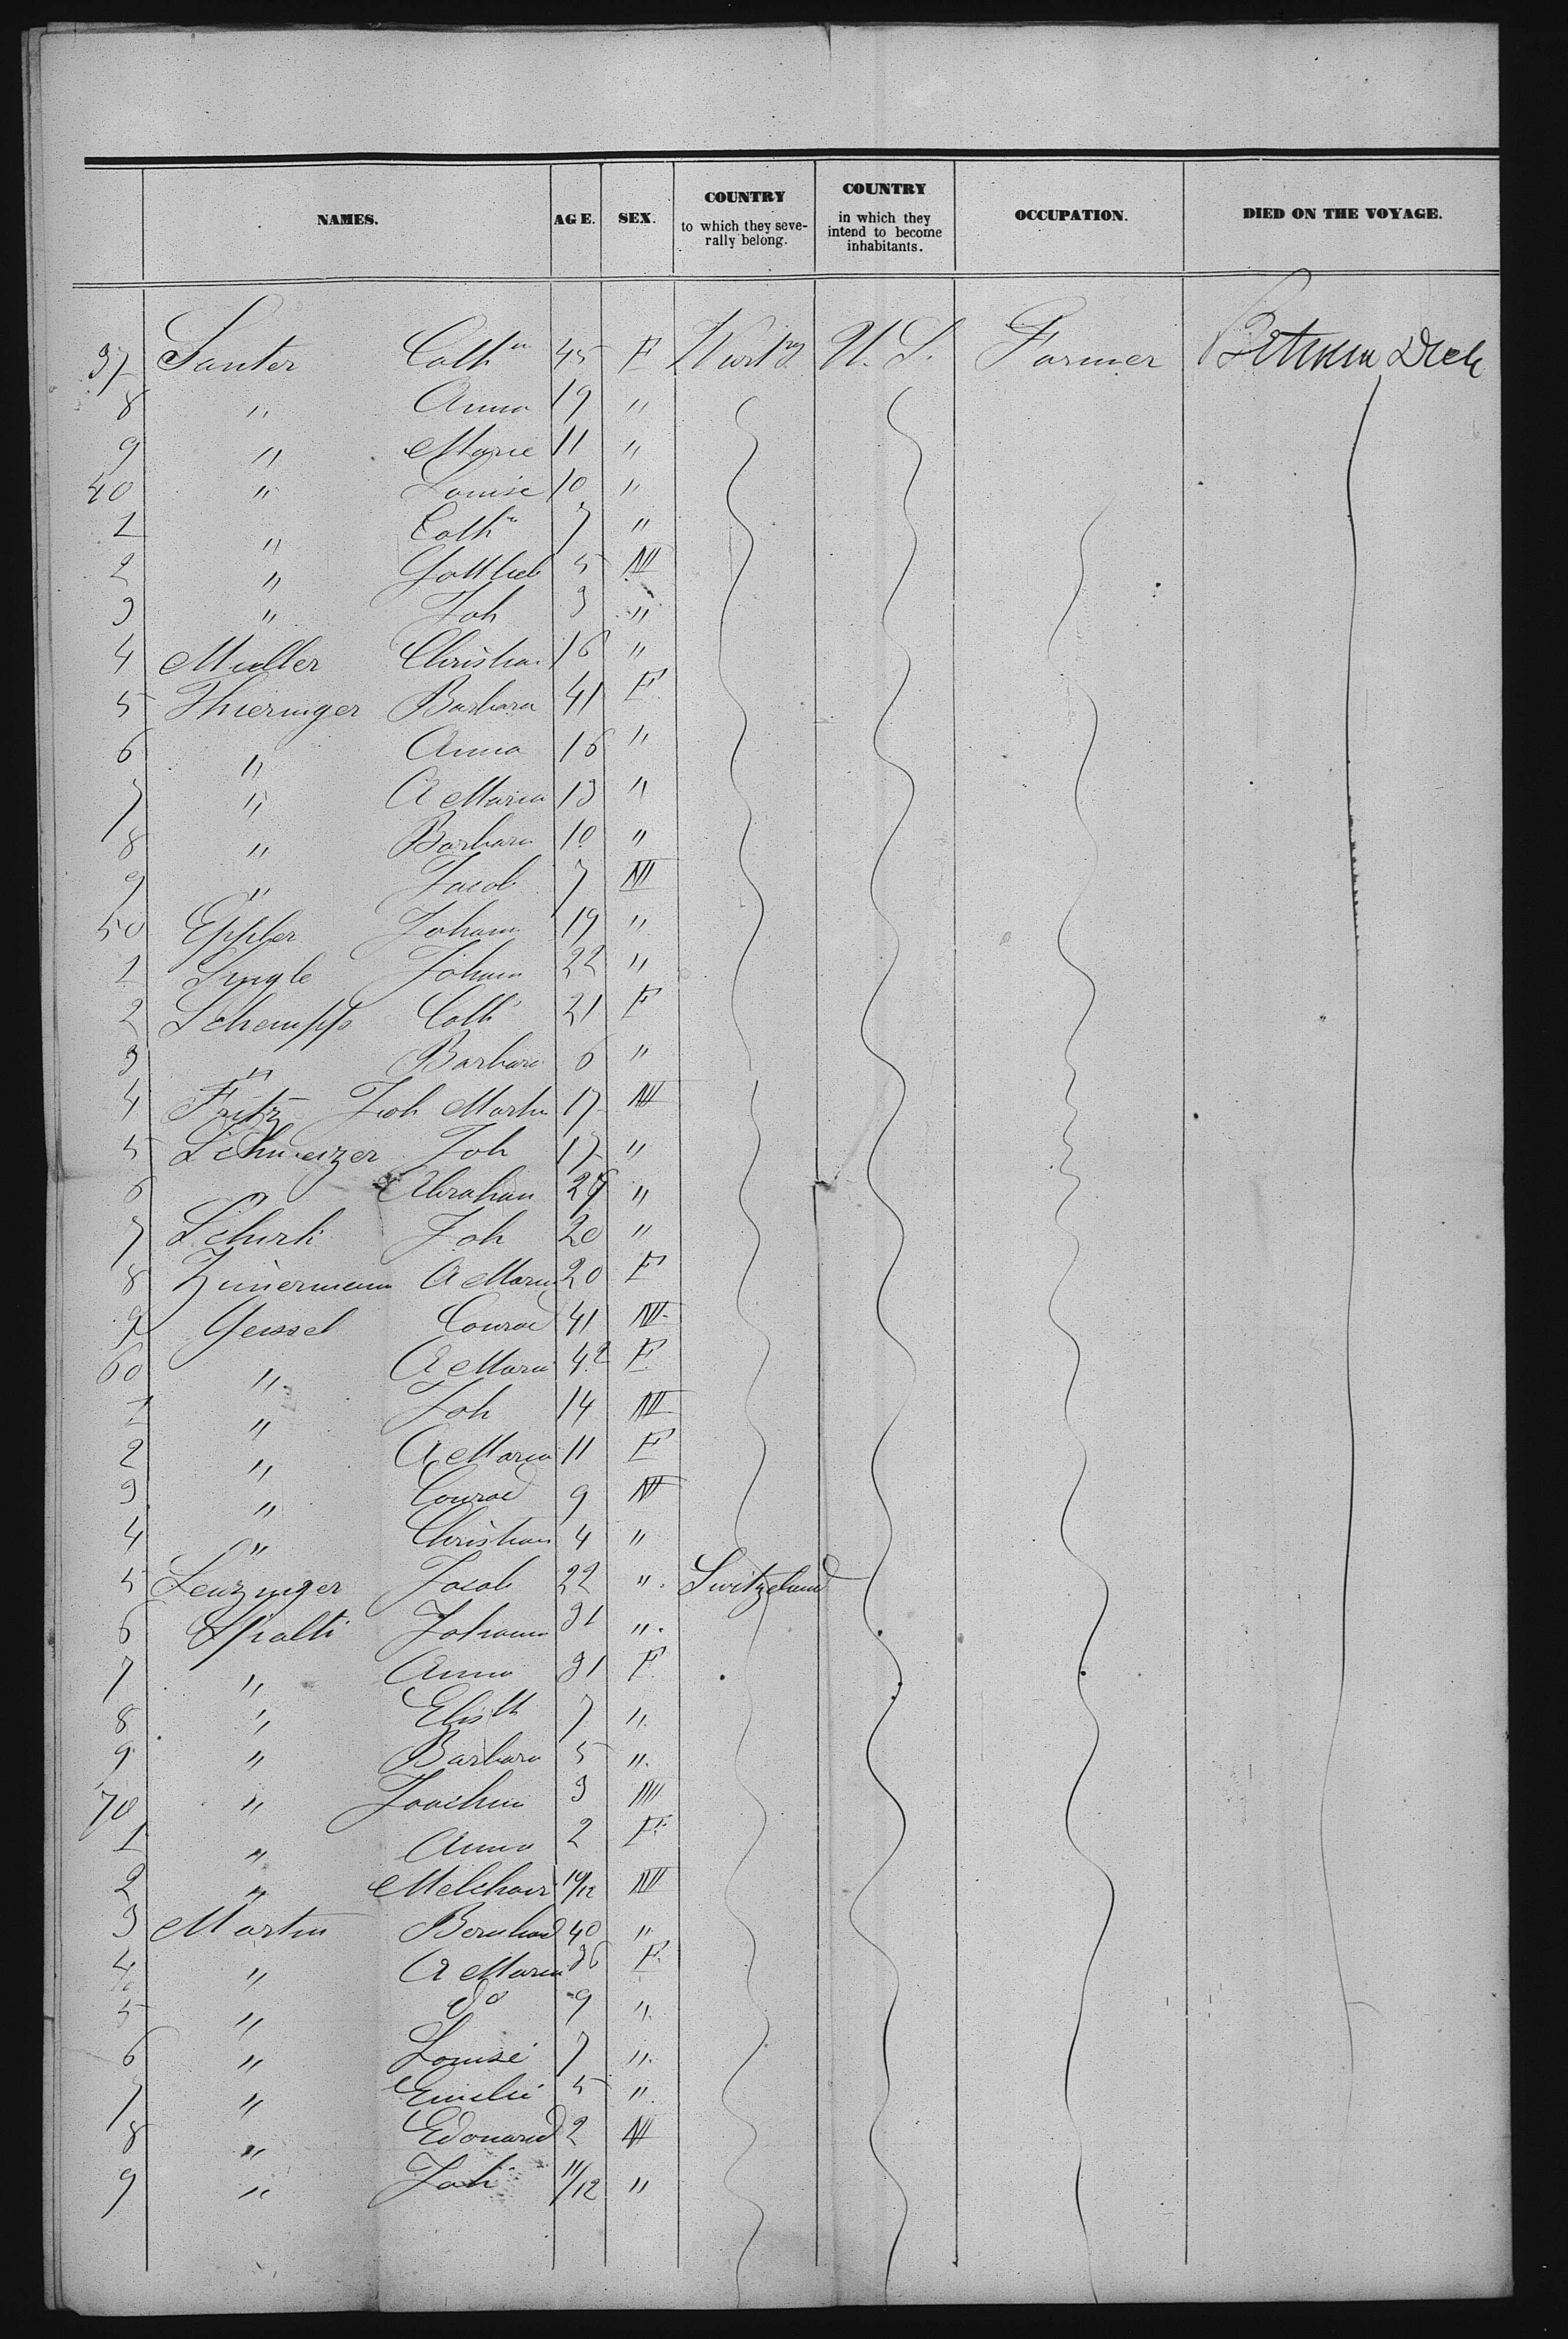 NAMES. AGE. SEX. COUNTRY to which they severally belong. COUNTRY in which they intend to become inhabitants. OCCUPATION. DIED ON THE VOYAGE.
37 Santer Cathn 45 F Wurtbg U.S. Farmer Between Deck
8 " Anna 19 "
9 " Marie 11 "
40 " Louise 10 "
1 " Cathn 7 "
2 " Gottlieb 5 M
3 " Joh 3 "
4 Muller Christian 16 "
5 Thieringer Barbara 41 F
6 " Anna 16 "
7 " A Maria 13 "
8 " Barbara 10 "
9 " Jacob 7 M
50 Eppler Johann 19 "
1 Single Johann 22 "
2 Schempp Cath 21 F
3 " Barbara 6 "
4 Fritz Joh Martin 17 M
5 Schweizer Joh 17 "
6 Abraham "
7 Schirk Joh 20 "
8 Zimermann A Maria 20 F
9 Geissel Conrad 41 M
60 " A Maria 42 F
1 " Joh 14 M
2 " A Maria 11 F
3 " Conrad 9 M
4 " Christian 4 "
5 Lenzinger Jacob 22 " Switzeland
6 Spalti Johann 31 "
7 " Anna 31 F
8 " Elisth 7 "
9 " Barbara 5 "
70 " Joachim 3 M
1 " Anna 2 F
2 " Melchoir 10/12 M
3 Martin Bernhard 40 "
4 " A Maria 36 F
5 " do 9 "
6 " Louise 7 "
7 " Emilie 5 "
8 " Edouard 2 M
9 " Joh 11/12 "